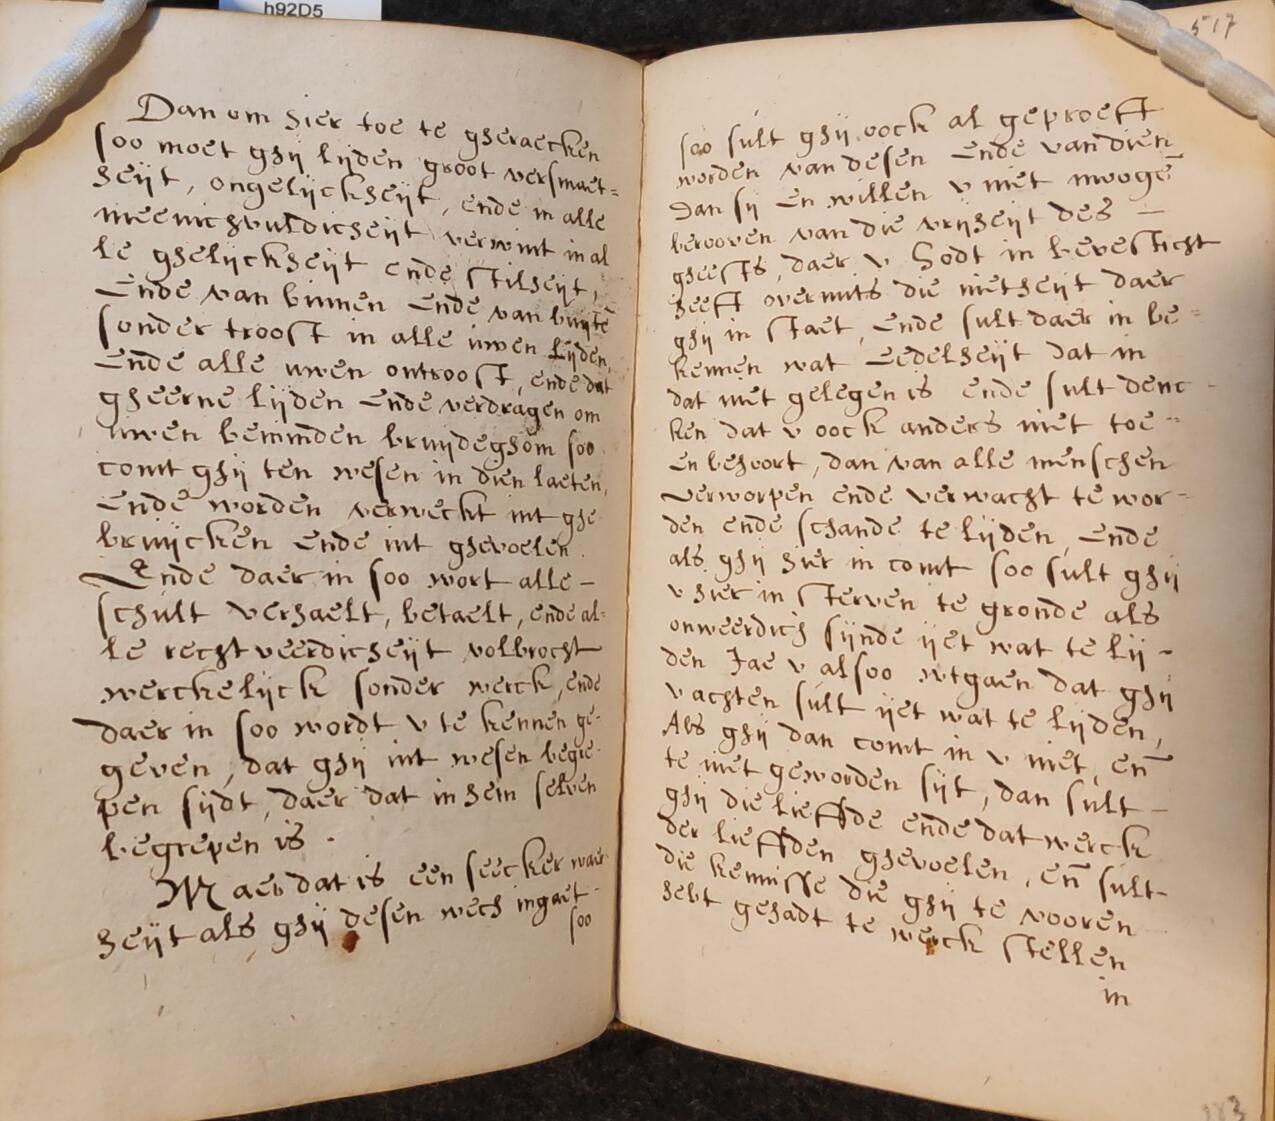 h92D5
Dan om hier toe te gheraecken
soo moet ghij lijden groot versmaet=
heijt, ongelijckheijt, ende in alle
meenichvuldicheijt verwint in al
le ghelijckheijt ende stilheijt,
Ende van binnen Ende van buijtē
sonder troost in alle uwen lijden,
Ende alle uwen ontroost, ende dat
gheerne lijden Ende verdragen om
uwen beminden bruijdeghom soo
comt ghij ten wesen in dien laeten,
Ende worden verweckt int ghe
bruijcken Ende int ghevoelen.
Ende daer in soo wort alle –
schult verhaelt, betaelt, ende al=
le rechtveerdicheijt volbrocht
werckelijck sonder werck, ende
daer in soo wordt v te kennen ge-
geven, dat ghij int wesen begre-
pen sijdt, daer dat in hem selven
begrepen is.
Maer dat is een seecker waer
heijt als ghij desen wech ingaet-
soo
517
soo sult ghij oock al geproeft
worden van desen Ende van dien
dan sij en willen v niet mooge
berooven van die vrijheijt des –
gheests, daer v Godt in bevesticht
heeft overmits die nietheijt daer
ghij in staet, Ende sult daer in be=
kennen wat Eedelheijt dat in
dat niet gelegen is ende sult denc -
ken dat v oock anders niet toe =
en behoort, dan van alle menschen
verworpen ende verwacht te wor-
den ende schande te lijden, Ende
als ghij hier in comt soo sult ghij
v hier in sterven te gronde als
onweerdich sijnde ijet wat te lij -
den Jae v alsoo wtgaen dat ghij
v achten sult ijet wat te lijden,
Als ghij dan comt in v niet, en̄
te niet geworden sijt, dan sult –
ghij die lieffde ende dat werck
der lieffden ghevoelen, en̄ sult-
die kennisse die ghij te vooren
hebt gehadt te werck stellen
in